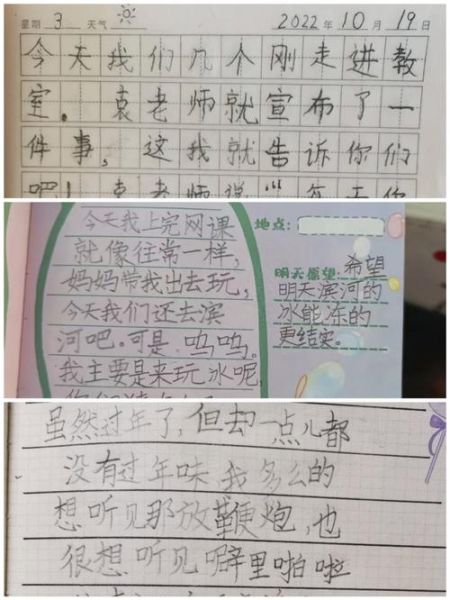 星期 3 天气 2022年10月19日
今天我们几个刚走进教
室。袁老师就宣布了一
件事，这我就告诉你们
吧！袁老师说："今天你
今天我上完网课
就像往常一样，
妈妈带我出去玩，
今天我们还去滨
河吧。可是，呜呜。
我主要是来玩冰呢，
地点：
明天愿望：希望
明天滨河的
冰能冻的
更结实。
虽然过年了，但却一点儿都
没有过年味，我多么的
想听见那放鞭炮，也
很想听见噼里啪啦